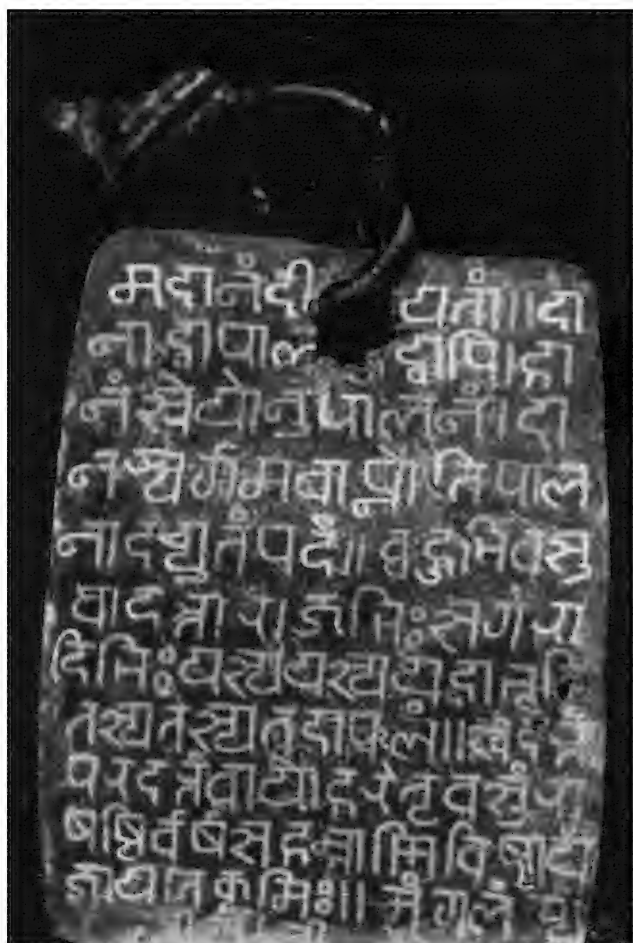 मदानंदी यतां॥दा
नाद्वापाल द्वापि।दा
नंश्रेयोनुपालनं।दा
नस्वर्गमवाप्नोतिपाल
नादच्युतंपदं॥वहुभिवसु
धादत्ताराजभिःसगरा
दिभिःयस्ययस्ययदाभूमि
तस्यतस्यतदाफलं॥स्वदत्तां
परदत्तंवायोहरेतवसुंधरा
षष्टिर्वर्षसहस्राणिविष्ठायां
जायतकृमिः॥मंगलं